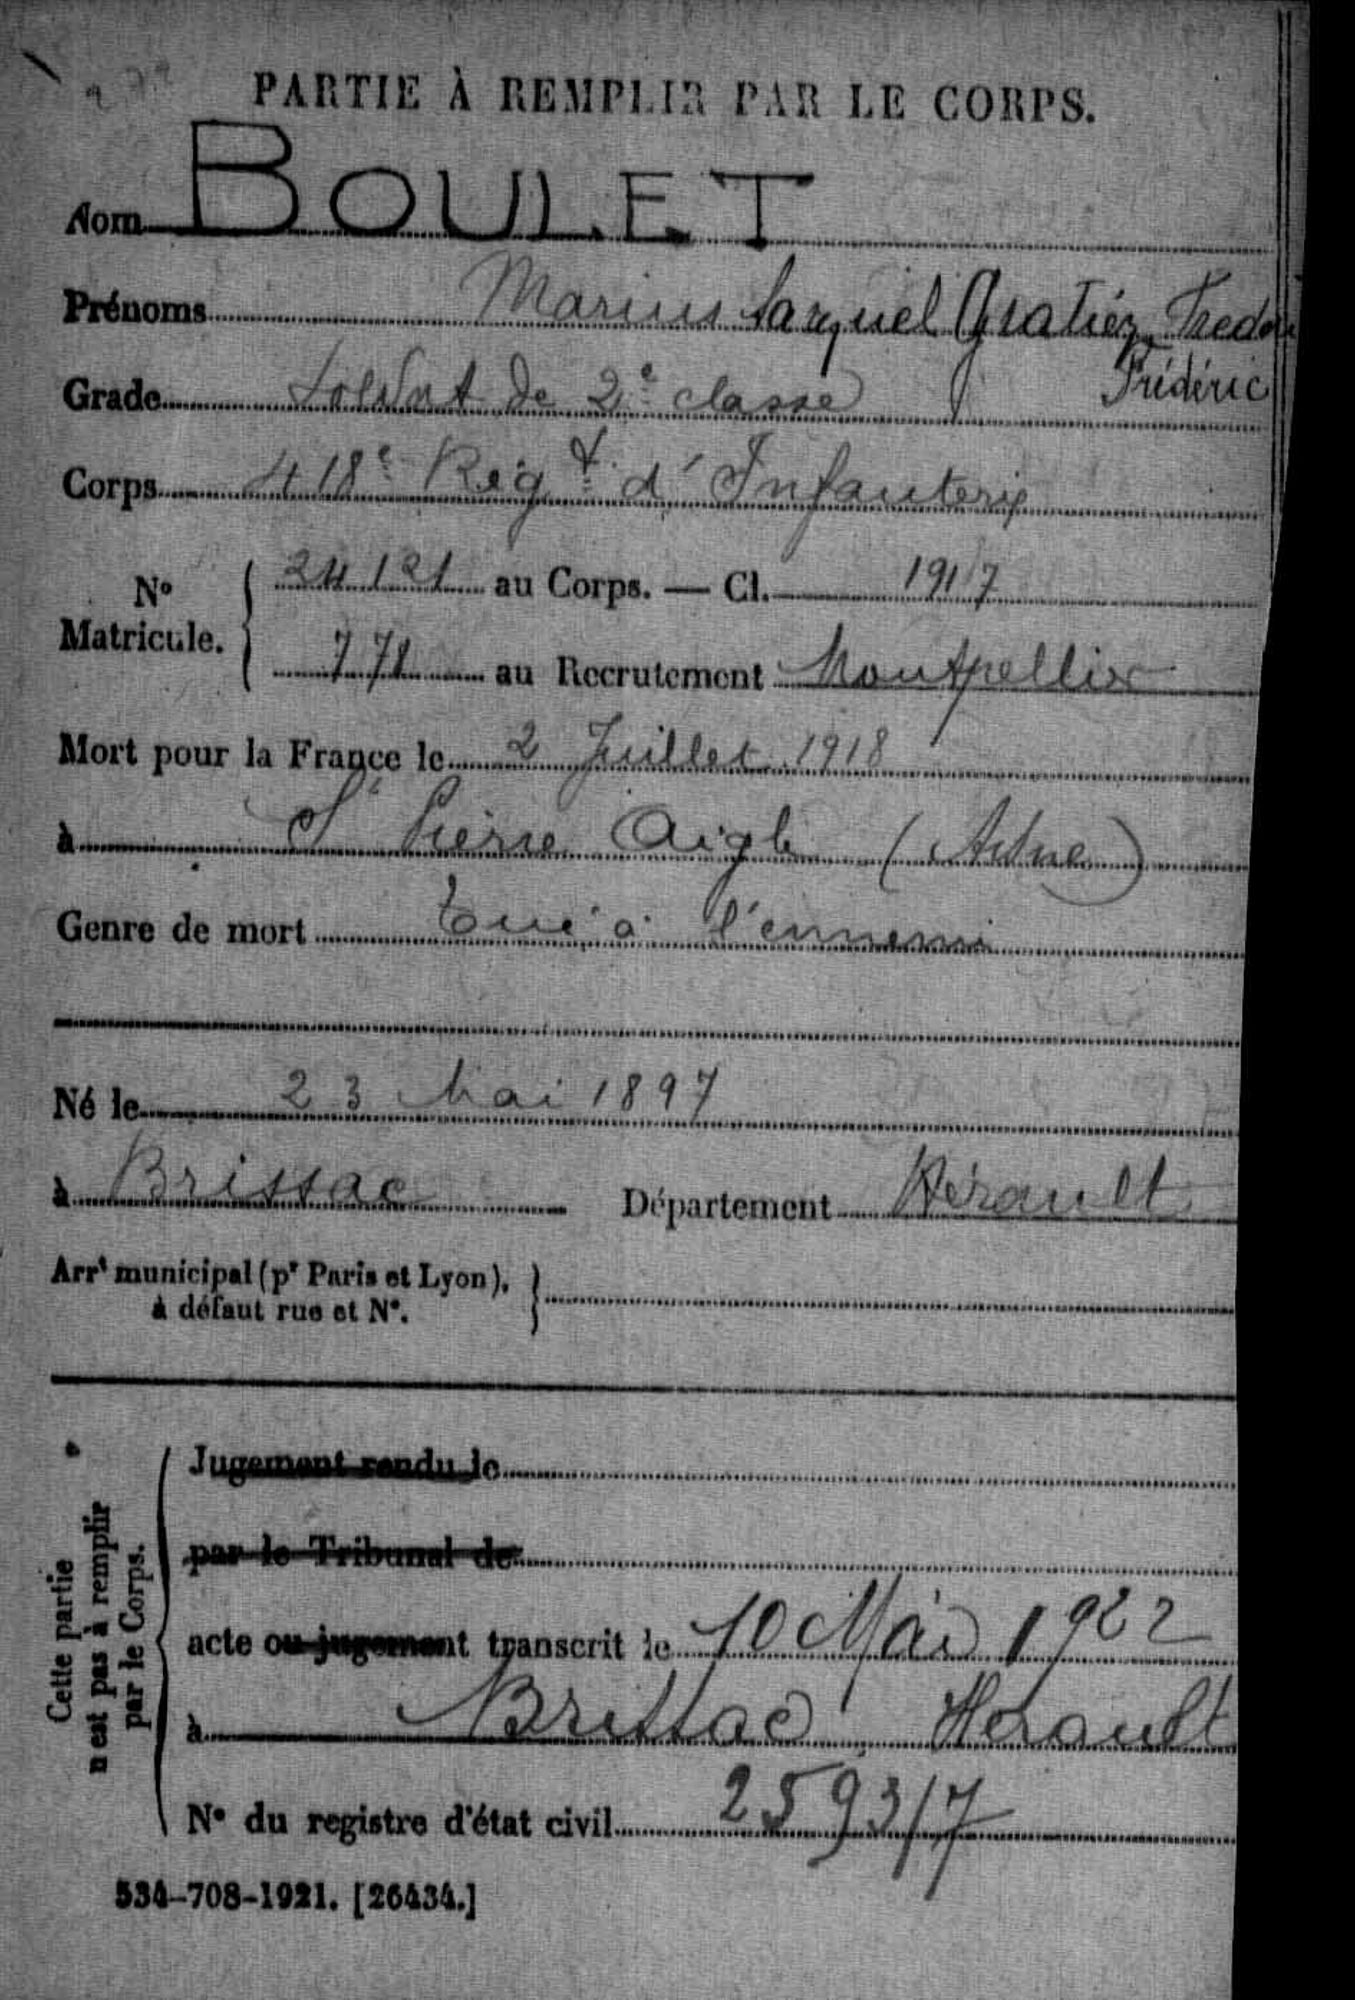 PARTIE À REMPLIR PAR LE CORPS.
Nom BOULET
Prénoms Marius
Frédéric
Grade Soldat de 2e classe
Corps 418e Régt d'Infanterie
No Matricule. 24121 au Corps. — Cl. 1917
771 au Recrutement Montpellier
Mort pour la France le 2 Juillet 1918
à St Pierre Aigle (Aisne)
Genre de mort Tué à l'ennemi
Né le 23 Mai 1897
à Brissac Département Hérault
Arrt municipal (pr Paris et Lyon),
à défaut rue et No.
Cette partie
n'est pas à remplir
par le Corps.
Jugement rendu le
par le Tribunal de
acte ou jugement transcrit le 10 Mai 1922
à Brissac Hérault
No du registre d'état civil 2593/7
534-708-1921. [26434.]